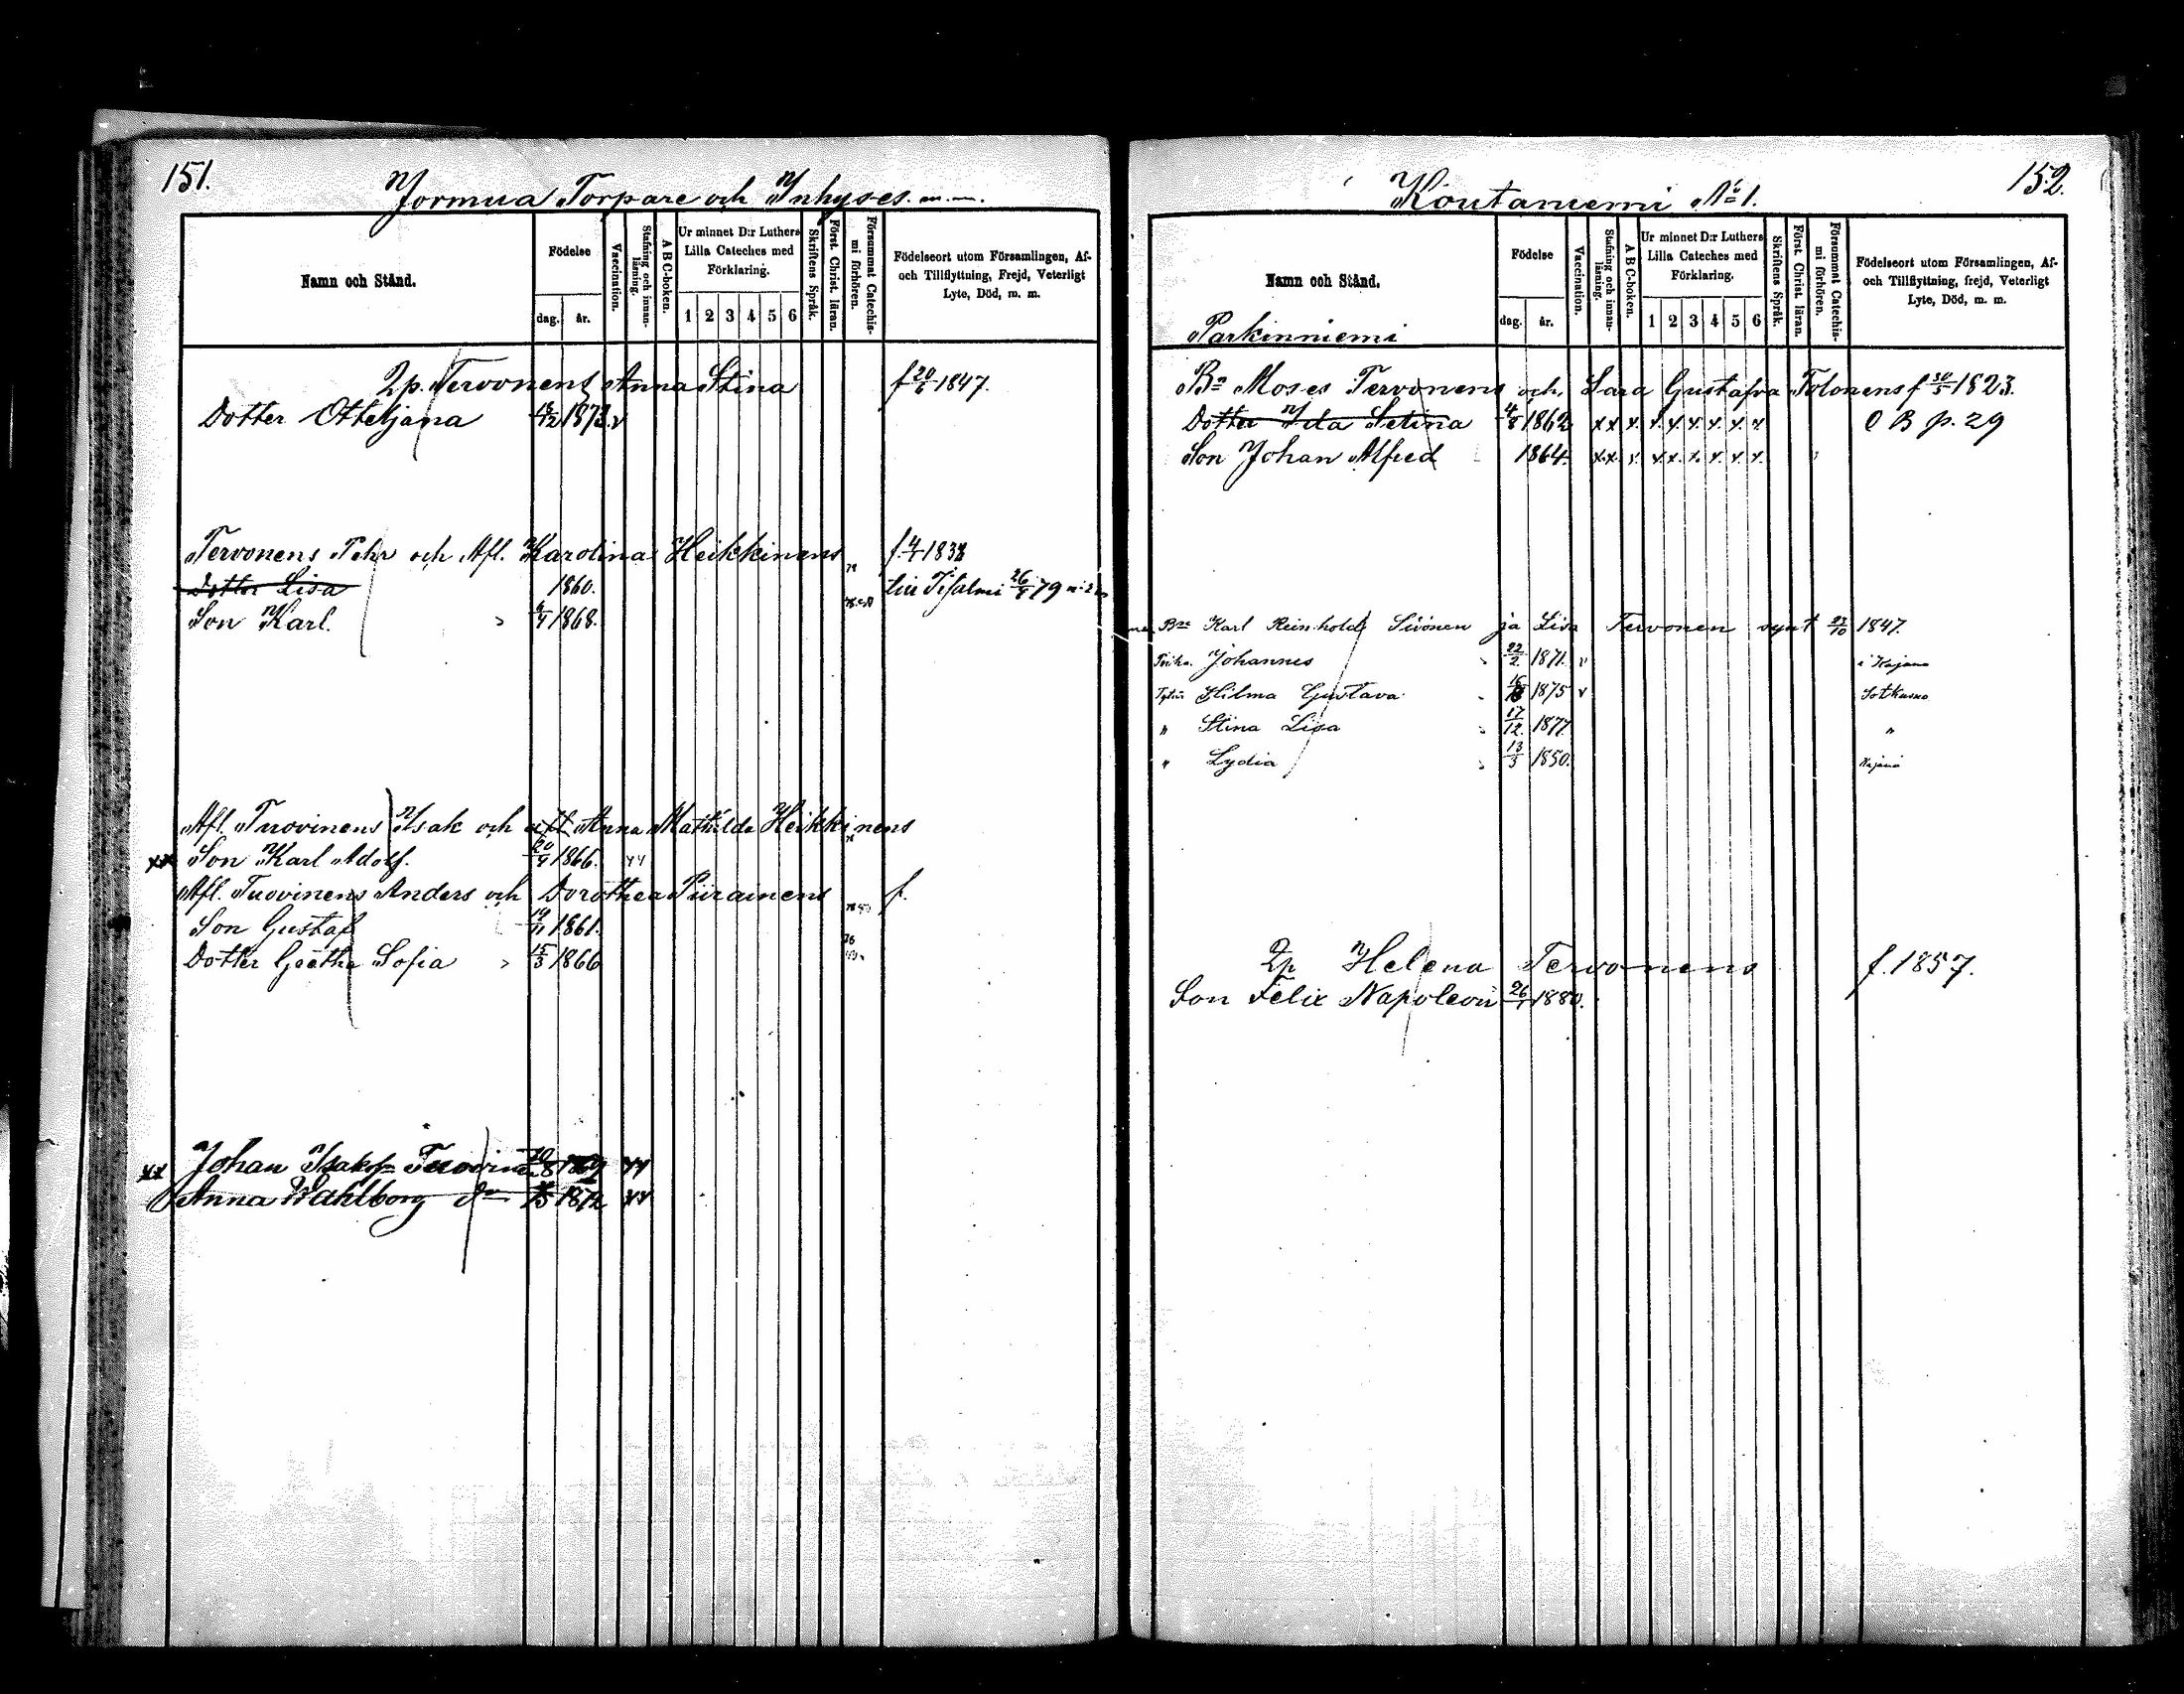 151.
Jormua Torpare och Inhyses.
Namn och Stånd.
Födelse
dag. år.
Vaccination.
Stafning och innanläsning.
A B C-boken.
Ur minnet D:r Luthers Lilla Cateches med Förklaring.
1 2 3 4 5 6
Skriftens Språk.
Först. Christ. läran.
Försummat Catechismi förhören.
Födelseort utom Församlingen, Af- och Tillflyttning, Frejd, Veterligt Lyte, Död, m. m.
Qp. Tervonens Anna Stina f 20/6 1847.
Dotter Otteljana 18/12 1873. v
Tervonens Pehr och Afl. Karolina Heikkinens f. 4/1 1838
Dotter Lisa 1860. till Iisalmi 26/9 79
Son Karl. 6/4 1868.
Afl. Tuovinens Isak och afl Anna Mathilda Heikkinens
xx Son Karl Adolf. 20/9 1866.
Afl. Tuovinens Anders och Dorothea Piirainens f.
Son Gustaf 19/11 1861.
Dotter Greetha Sofia 15/3 1866
xx Johan Isaks Tuovinen
Anna Wahlborg 1872 xx
152.
Koutaniemi No 1.
Namn och Stånd.
Födelse
dag. år.
Vaccination.
Stafning och innanläsning.
A B C-boken.
Ur minnet D:r Luthers Lilla Cateches med Förklaring.
1 2 3 4 5 6
Skriftens Språk.
Först. Christ. läran.
Försummat Catechismi förhören.
Födelseort utom Församlingen, Af- och Tillflyttning, frejd, Veterligt Lyte, Död, m. m.
Parkinniemi
Bn Moses Tervonens och Sara Gustafva Tolonens f 30/5 1823.
Dotter Ida Setina 4/8 1862 x x x. x. x. x. x. x. x. O B p. 29
Son Johan Alfred 1864. x. x. x. x. x. x. x. x. x.
Bn Karl Reinhold Siivonen ja Lisa Tervonen synt 23/10 1847.
Poika. Johannes 22/2 1871. v i Kajana
Tytär Hilma Gustava 1875 v Sotkamo
" Stina Lisa 17/12. 1877. "
" Lydia 13/3 1850. Kajana
Qp Helena Tervonens f. 1857.
Son Felix Napoleon 26/1 1880.